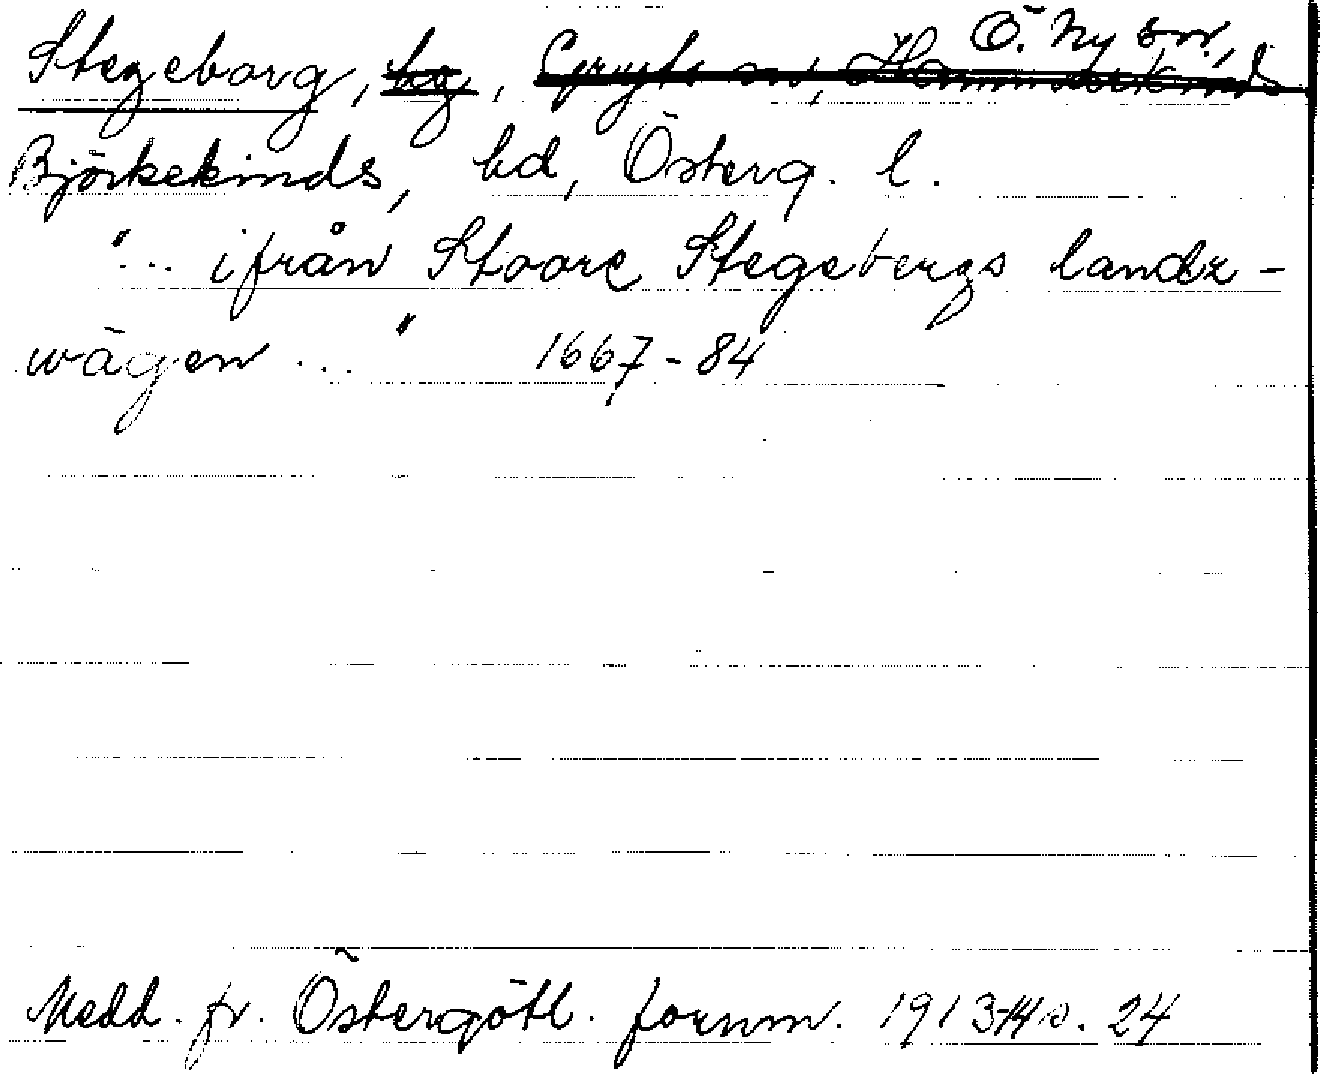 Stegeborg, hg, Gryts sn, Hammarkinds Ö. Ny sn,
Björkekinds, hd, Österg. l.
"... ifrån Stoore Stegebergs landz-
wägen ..." 1667-84
Medd. fr. Östergötl. fornm. 1913-14 s. 24